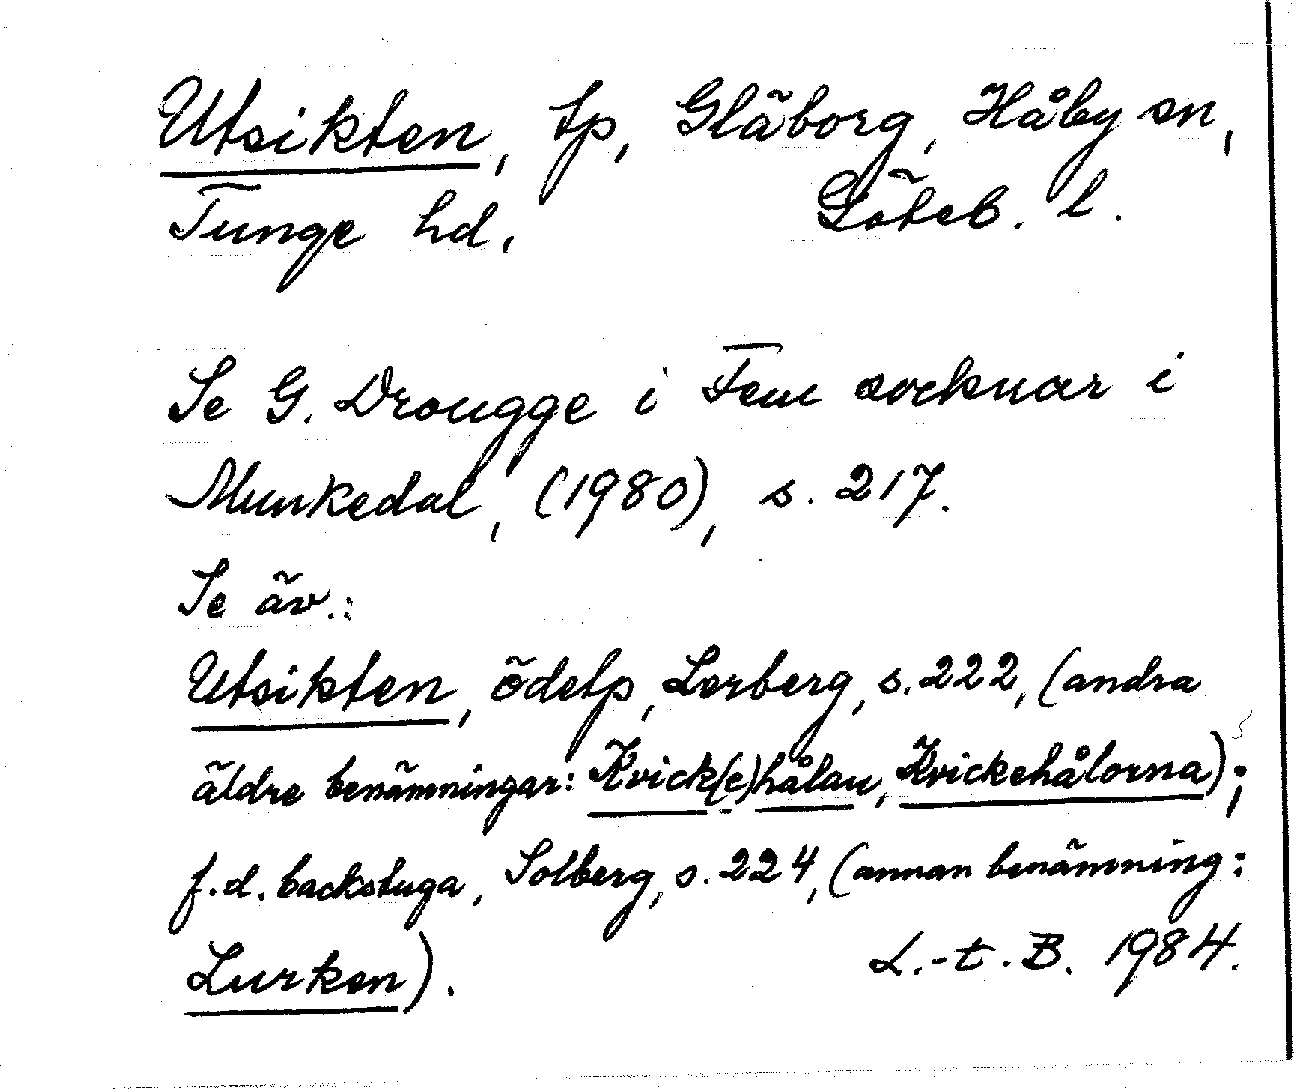 Utsikten, tp, Gläborg, Håby sn,
Tunge hd. Göteb. l.
Se G. Drougge i Fem socknar i
Munkedal, (1980), s. 217.
Se äv.:
Utsikten, ödetp, Lerberg, s. 222, (andra
äldre benämningar: Kvick(e)hålan, Kvickehålorna);
f.d. backstuga, Solberg, s. 224, (annan benämning:
Lurken). L.-t. B. 1984.